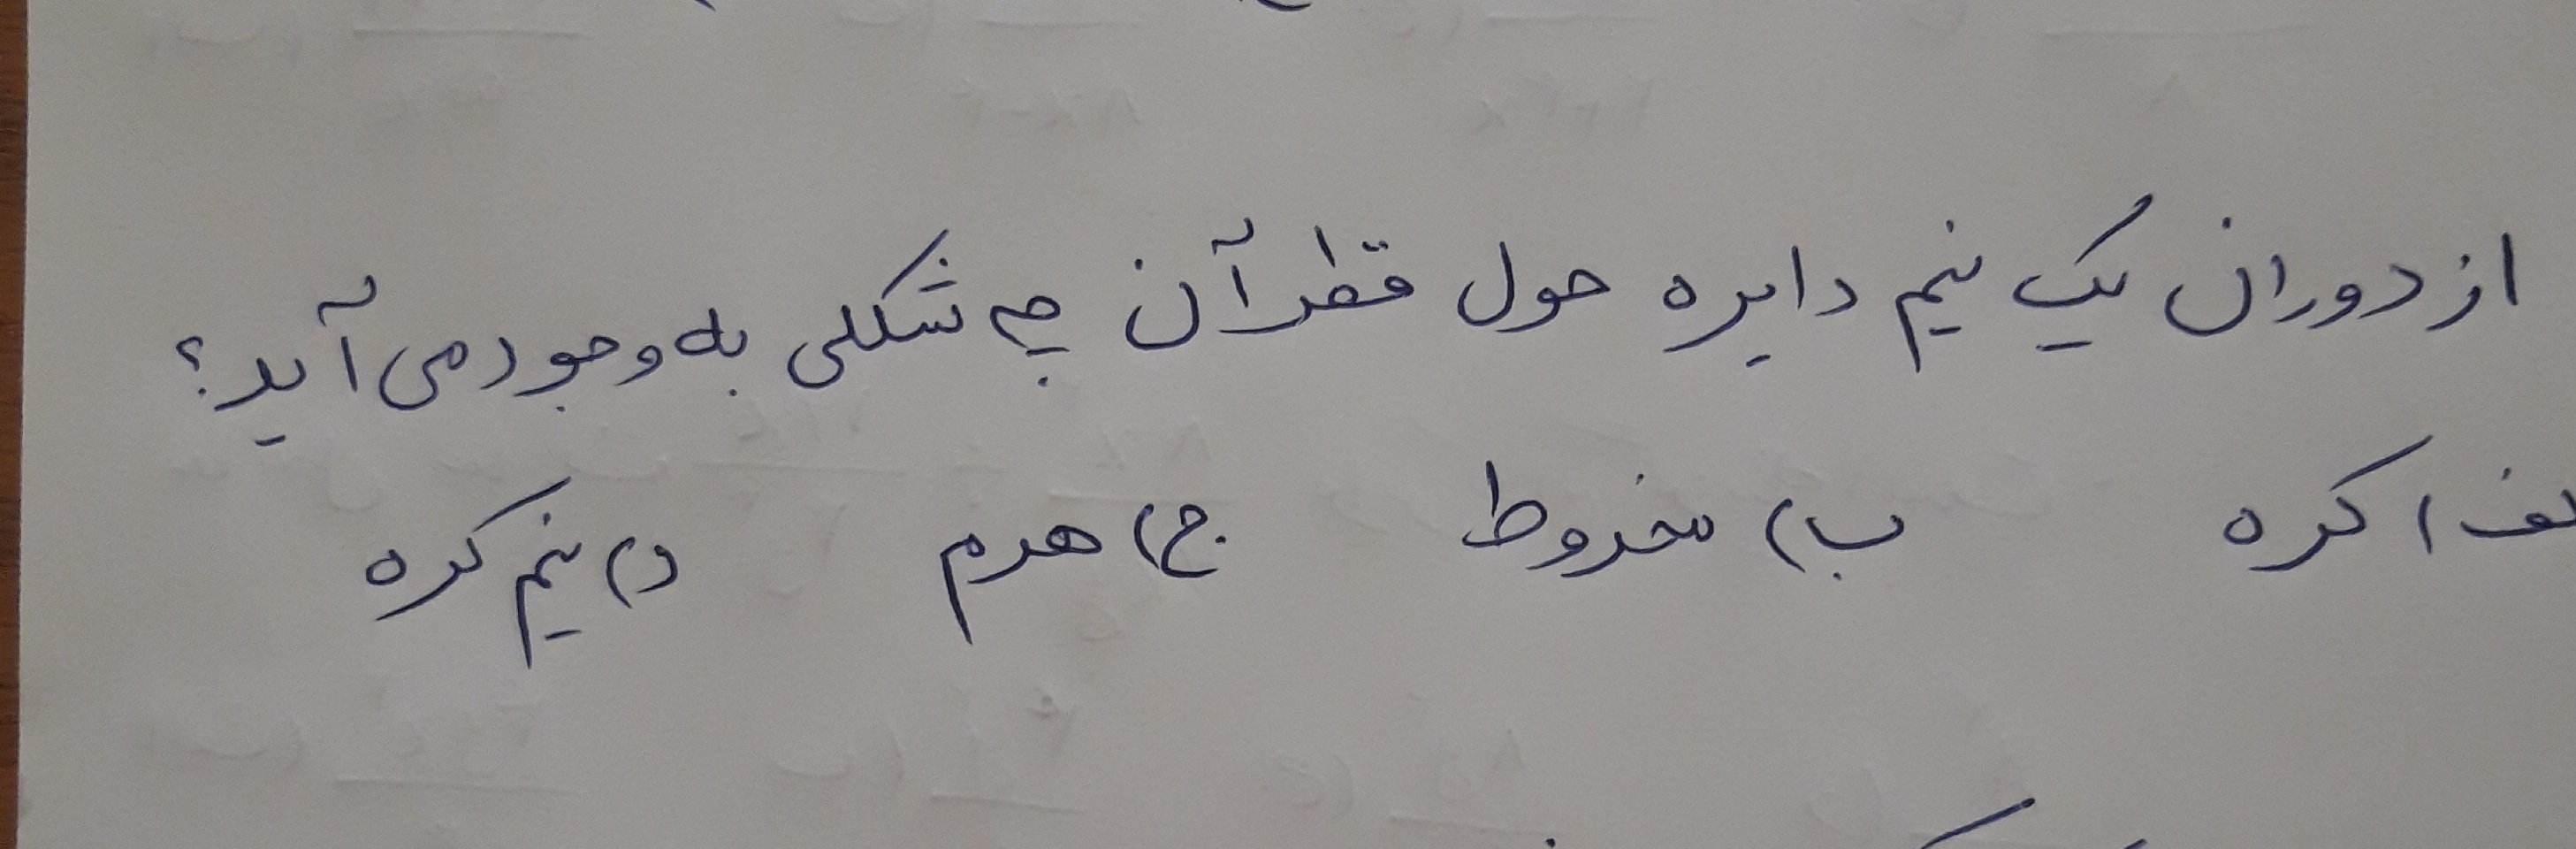 از دوران یک نیم دایره حول قطر آن چه شکلی به وجود می آید؟
لف) کره ب) مخروط ج) هرم د) نیم کره